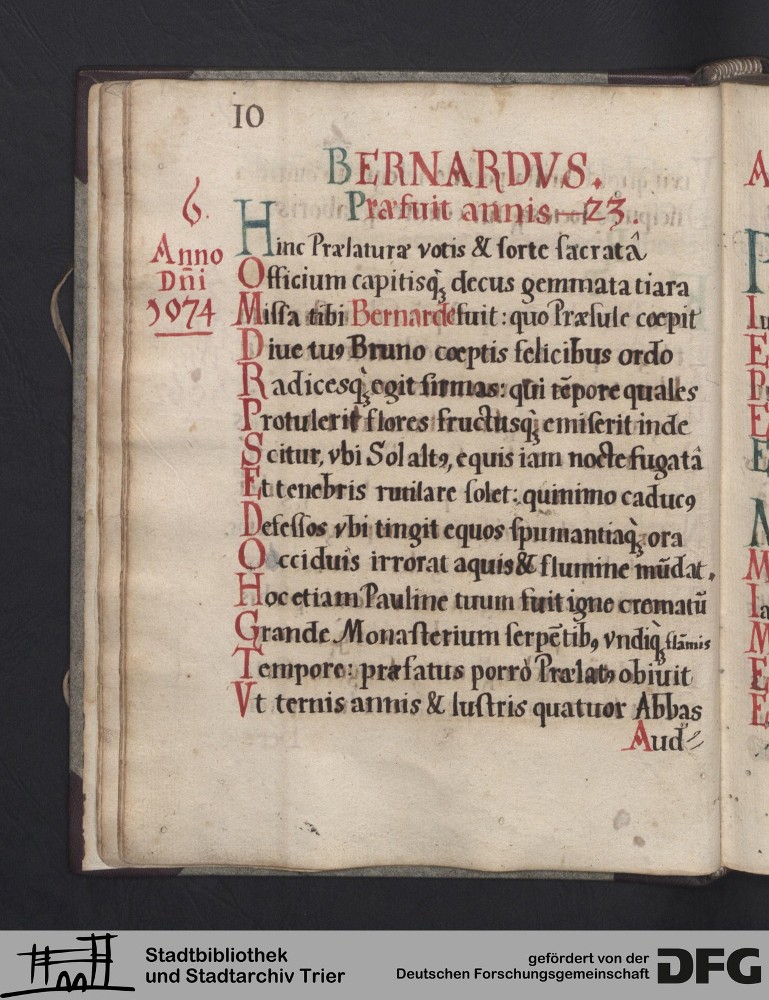 10
BERNARDVS.
Præfuit annis—23.
6.
Anno
Dñi
1074
Hinc Prælaturæ votis & sorte sacratâ
Officium capitisqꝫ decus gemmata tiara
Missa tibi Bernarde fuit: quo Præsule cœpit
Diue tuꝰ Bruno cœptis felicibus ordo
Radicesqꝫ egit firmas: qui tẽpore quales
Protulerit flores fructusqꝫ emiserit inde
Scitur, vbi Sol altꝰ, equis iam nocte fugatâ
Et tenebris rutilare solet: quinimo caducꝰ
Defessos vbi tingit equos spumantiaqꝫ ora
Occiduis irrorat aquis & flumine mũdat.
Hoc etiam Pauline tuum fuit igne crematũ
Grande Monasterium serpẽtibꝰ vndiqꝫ flãmis
Tempore: præfatus porrò Prælatꝰ obiuit
Vt ternis annis & lustris quatuor Abbas
Aud
Stadtbibliothek
und Stadtarchiv Trier
gefördert von der
Deutschen Forschungsgemeinschaft
DFG